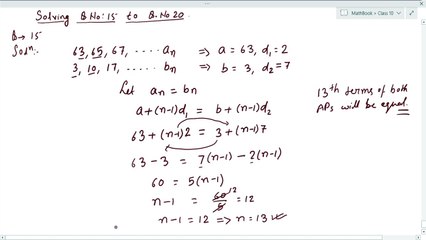 MathBook > Class 10
Solving Q No: 15 to Q. No 20
Q → 15
Soln:-
63, 65, 67, ..... an ⇒ a = 63, d₁ = 2
3, 10, 17, ..... bn ⇒ b = 3, d₂ = 7
Let an = bn
a + (n-1)d₁ = b + (n-1)d₂
63 + (n-1)2 = 3 + (n-1)7
63 - 3 = 7(n-1) - 2(n-1)
60 = 5(n-1)
n-1 = 60/5 12 = 12
n-1 = 12 ⇒ n = 13
13th terms of both
APs will be equal